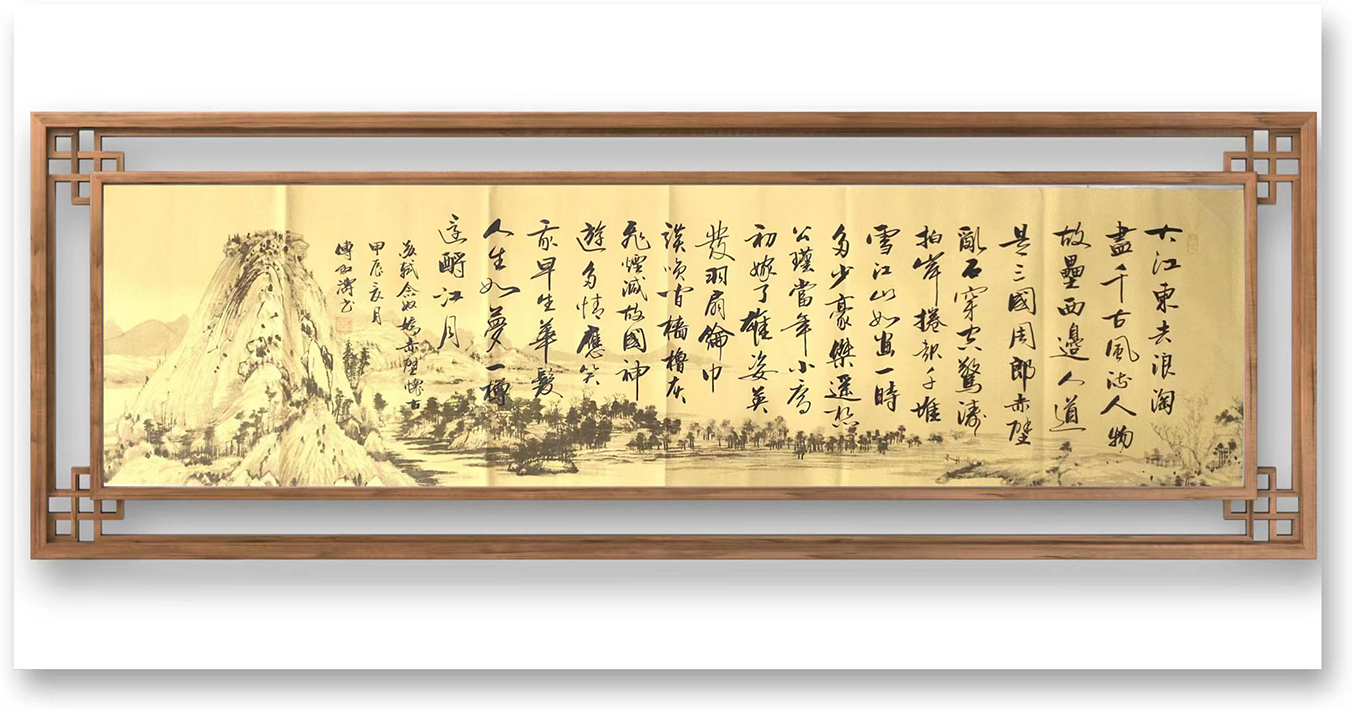 大江東去浪淘
盡千古風流人物
故壘西邊人道
是三國周郎赤壁
亂石穿空驚濤
拍岸捲起千堆
雪江山如畫一時
多少豪傑遥想
公瑾當年小喬
初嫁了雄姿英
發羽扇綸巾
談笑間檣櫓灰
飛煙滅故國神
遊多情應笑
我早生華髮
人生如夢一樽
還酹江月
蘇軾念奴嬌赤壁懷古
甲辰亥月
傅濤书